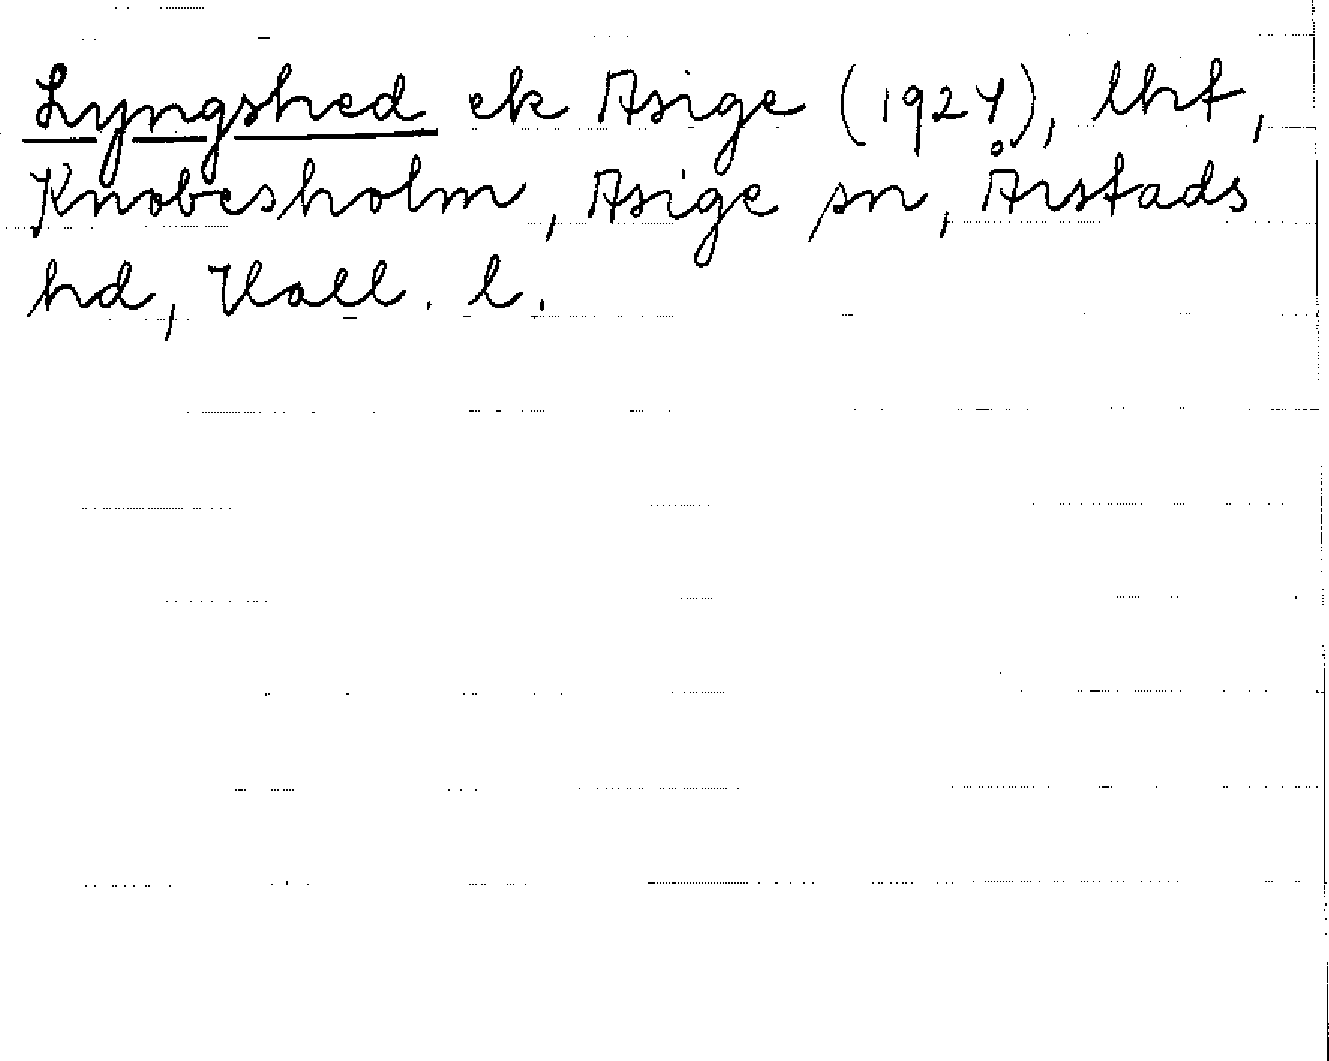 Lyngshed ek Asige (1924), lht,
Knobesholm, Asige sn, Årstads
hd, Hall. l.